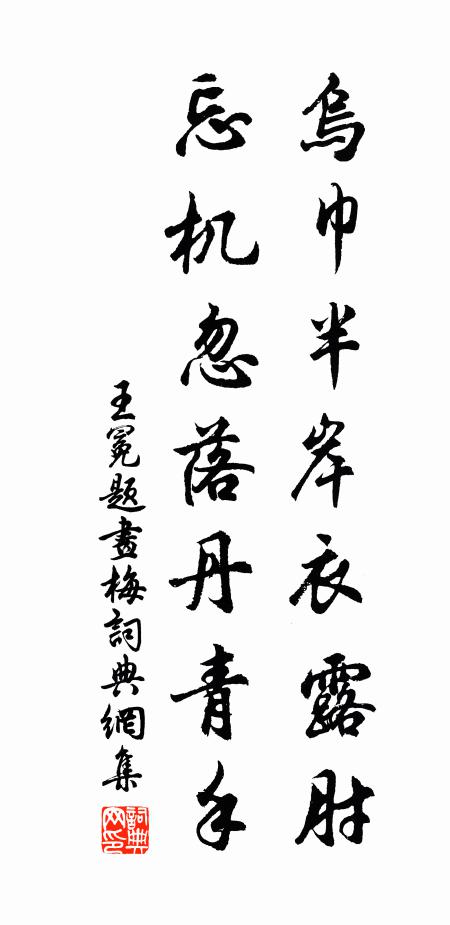 烏巾半岸衣露肘
忘机忽落丹青手
王冕题畫梅詞典網集
詞典网印